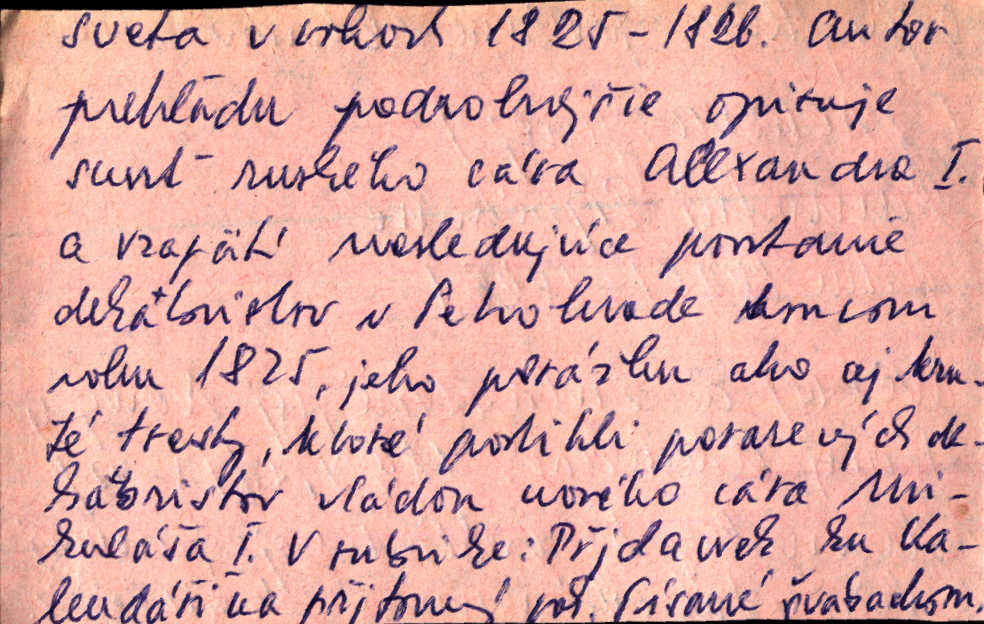 sveta v rokoch 1825-1826. Autor
prehľadu podrobnejšie opisuje
smrť ruského cára Alexandra I.
a vzapätí nasledujúce povstanie
dekabristov v Petrohrade koncom
roku 1825, jeho porážku ako aj kru-
té tresty, ktoré postihli porazených de-
kabristov vládou nového cára Mi-
kuláša I. V rubrike: Přjdawek ku Ka-
lendáři na přjtomný rok. Písané švabachom.